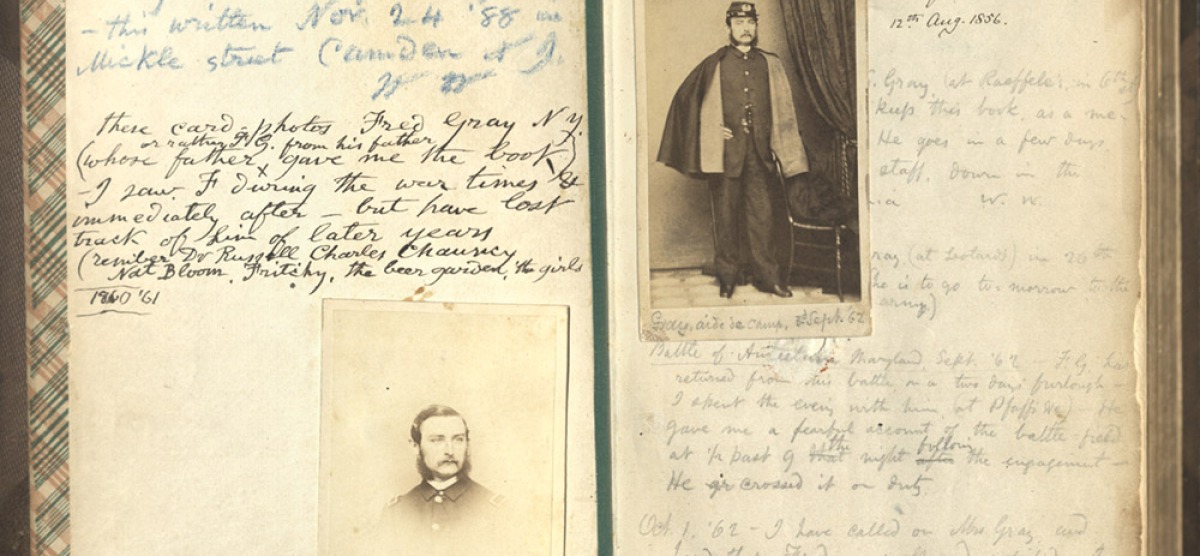 - this written Nov. 24 '88 in
Mickle street Camden N J.
W W
these card-photos Fred Gray N Y.
or rather F G. from his father
(whose father, gave me the book)
x
- I saw F during the war times &
immediately after - but have lost
track of him of later years
(remiber Dr Russell Charles Chauncy
Nat Bloom, Fritchy, the beer garden, the girls
1860 '61
12th Aug. 1856.
Gray, (at Raeffele's, in 6th
keep this book, as a me-
He goes in a few days,
staff, down in the
W. W.
(at Leotards) in 26th
he is to go to-morrow to the
army)
Gray, aide de camp, Sept. 62
Battle of Antietam Maryland, Sept. '62 - F. G. has
returned from this battle on a two days' furlough -
I spent the eve'g with him (at Pfaff's &c) - He
gave me a fearful account of the battle-field
at ½ past 9 that the night after following the engagement -
He crossed it on duty.
Oct. 1, '62 - I have called on Mrs Gray, and